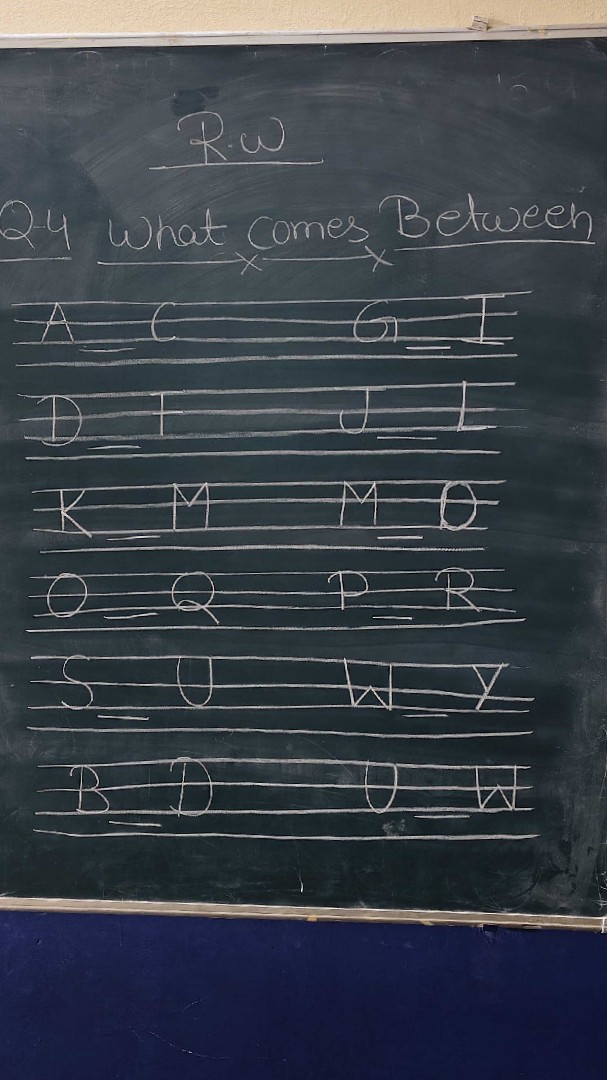 R.W
Q-4 What comes Between
A __ C G __ I
D __ F J __ L
K __ M M __ O
O __ Q P __ R
S __ U W __ Y
B __ D U __ W